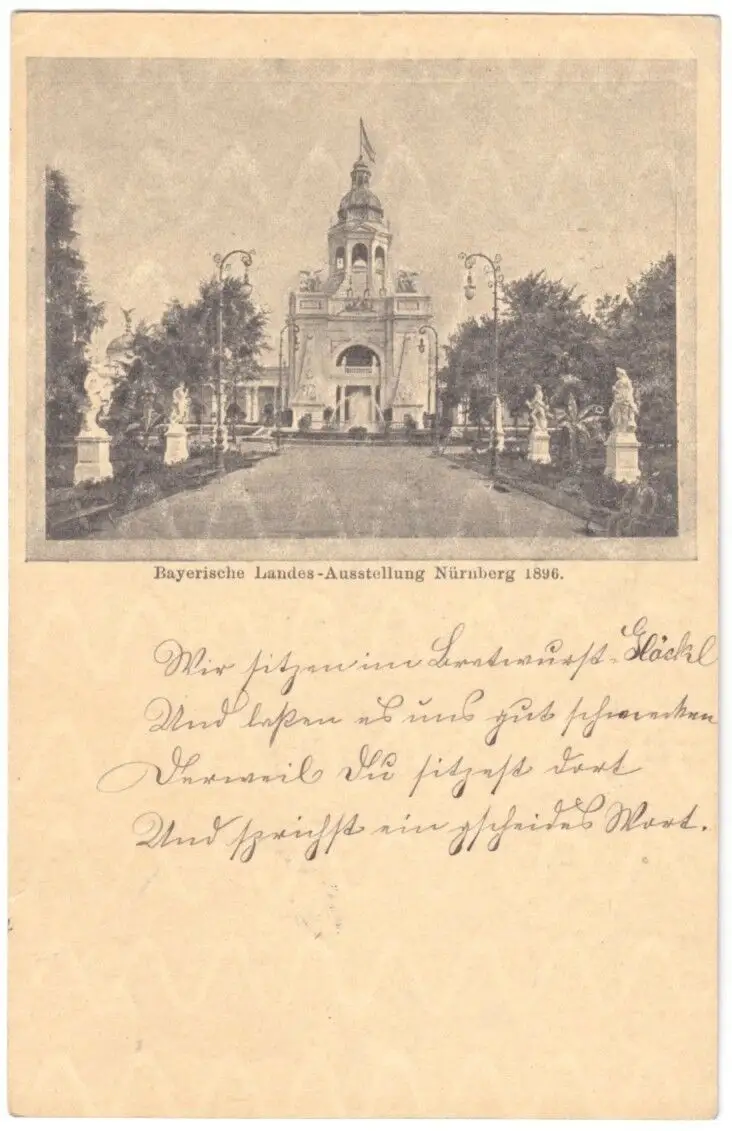 Bayerische Landes-Ausstellung Nürnberg 1896.
Wir sitzen im Bratwurst-Glöckl
Und laßen es uns gut schmecken
Derweil Du sitzest dort
Und sprichst ein gscheides Wort.